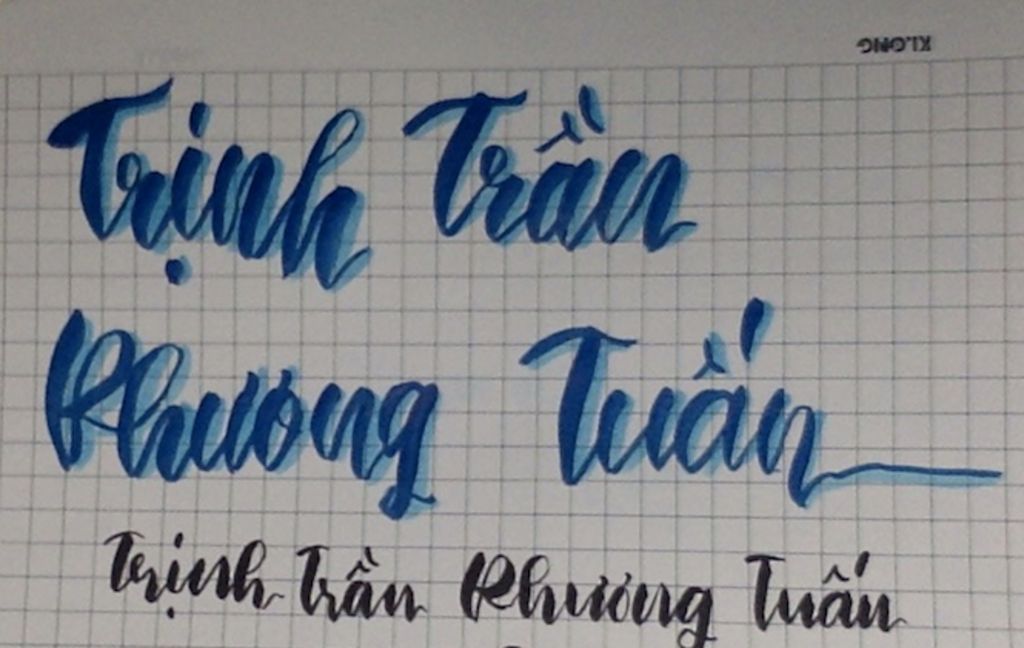 KLONG
Trịnh Trần
Phương Tuấn
Trịnh Trần Phương Tuấn